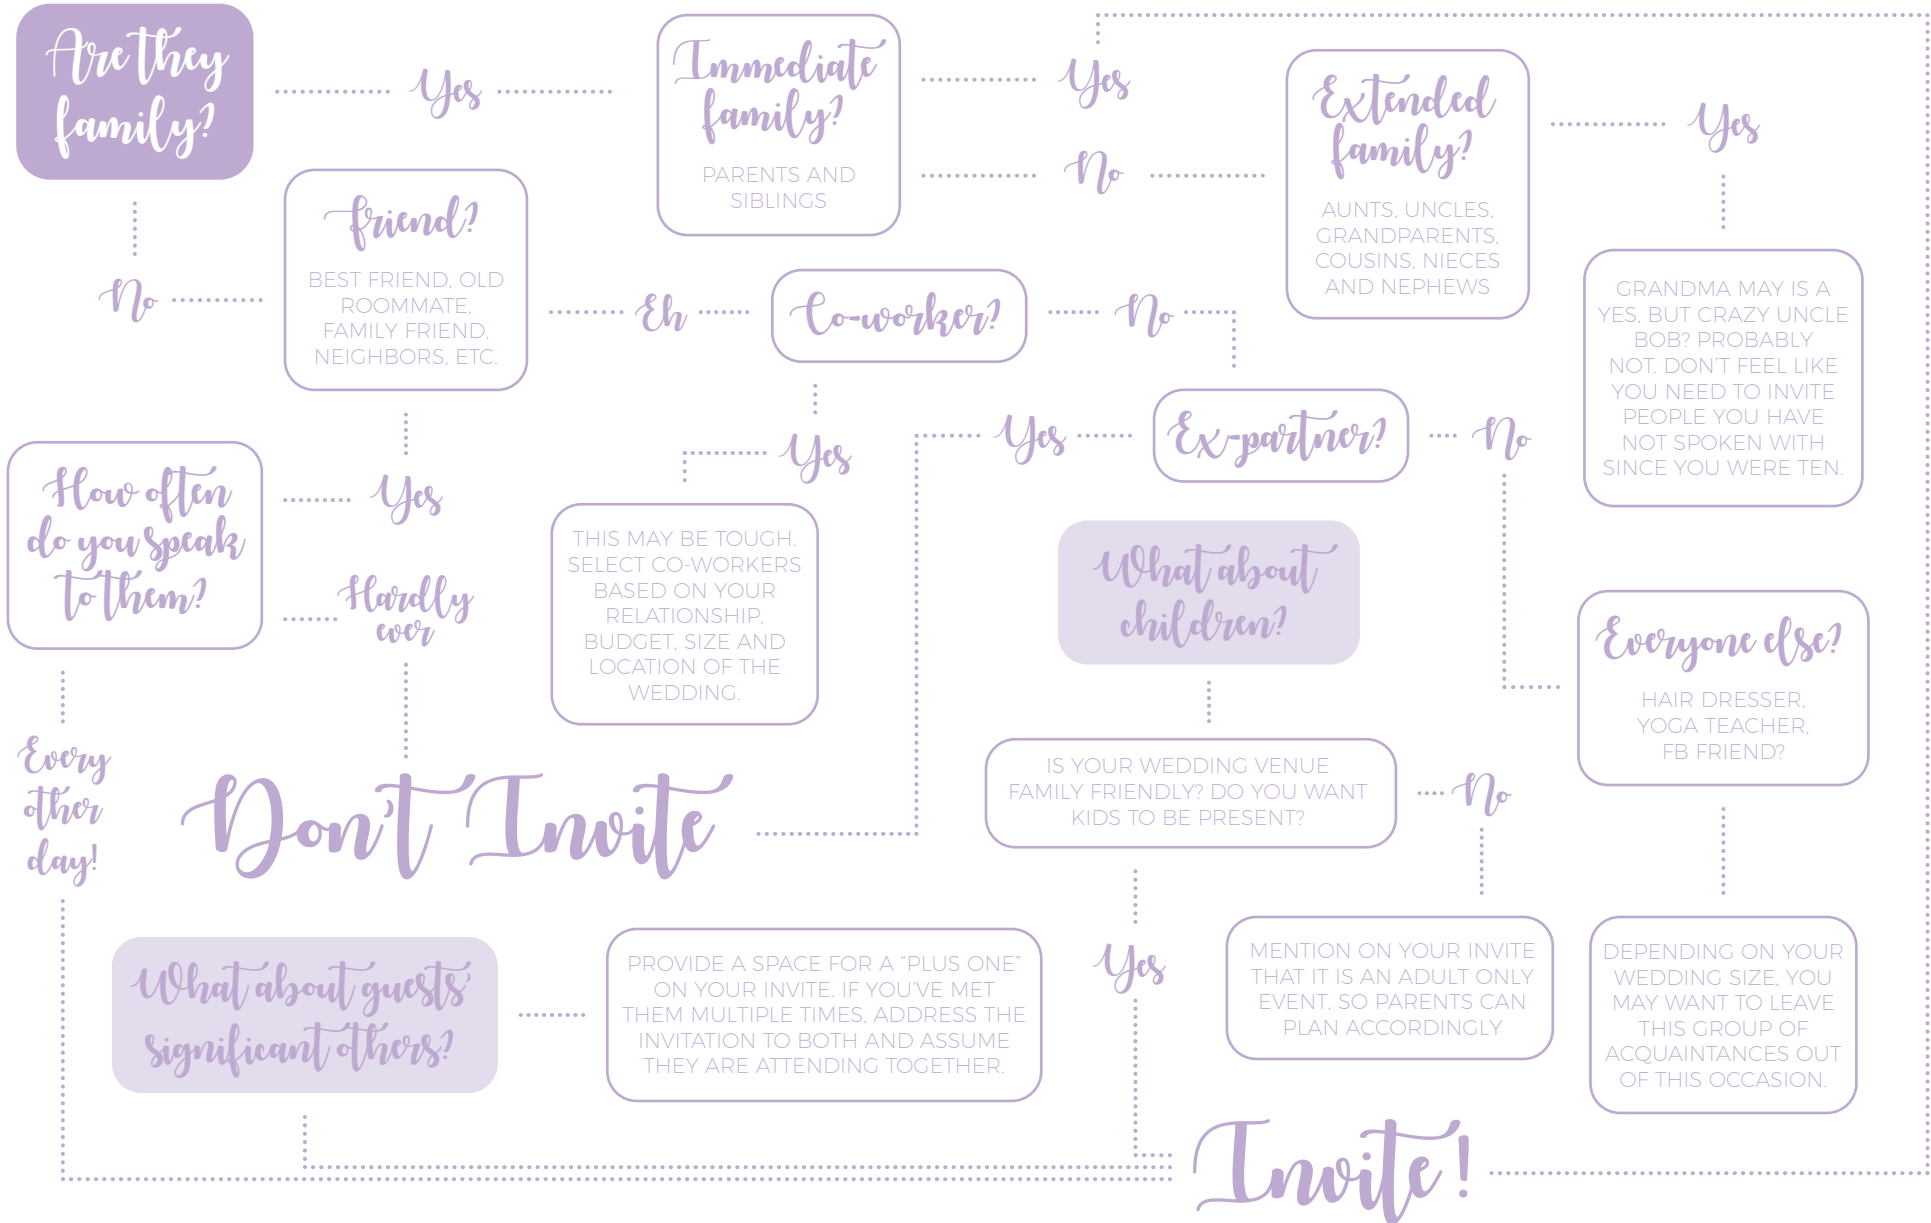 Are they
family?
Yes
Immediate
family?
PARENTS AND
SIBLINGS
Yes
No
Extended
family?
AUNTS, UNCLES,
GRANDPARENTS,
COUSINS, NIECES
AND NEPHEWS
Yes
GRANDMA MAY IS A
YES, BUT CRAZY UNCLE
BOB? PROBABLY
NOT. DON'T FEEL LIKE
YOU NEED TO INVITE
PEOPLE YOU HAVE
NOT SPOKEN WITH
SINCE YOU WERE TEN.
No
friend?
BEST FRIEND, OLD
ROOMMATE,
FAMILY FRIEND,
NEIGHBORS, ETC.
Eh
Co-worker?
No
Yes
THIS MAY BE TOUGH.
SELECT CO-WORKERS
BASED ON YOUR
RELATIONSHIP,
BUDGET, SIZE AND
LOCATION OF THE
WEDDING.
Yes
Ex-partner?
No
Yes
How often
do you speak
to them?
Hardly
ever
Every
other
day!
Don't Invite
What about
children?
IS YOUR WEDDING VENUE
FAMILY FRIENDLY? DO YOU WANT
KIDS TO BE PRESENT?
No
Yes
MENTION ON YOUR INVITE
THAT IT IS AN ADULT ONLY
EVENT, SO PARENTS CAN
PLAN ACCORDINGLY
Everyone else?
HAIR DRESSER,
YOGA TEACHER,
FB FRIEND?
DEPENDING ON YOUR
WEDDING SIZE, YOU
MAY WANT TO LEAVE
THIS GROUP OF
ACQUAINTANCES OUT
OF THIS OCCASION.
What about guests'
significant others?
PROVIDE A SPACE FOR A “PLUS ONE”
ON YOUR INVITE. IF YOU'VE MET
THEM MULTIPLE TIMES, ADDRESS THE
INVITATION TO BOTH AND ASSUME
THEY ARE ATTENDING TOGETHER.
Invite!